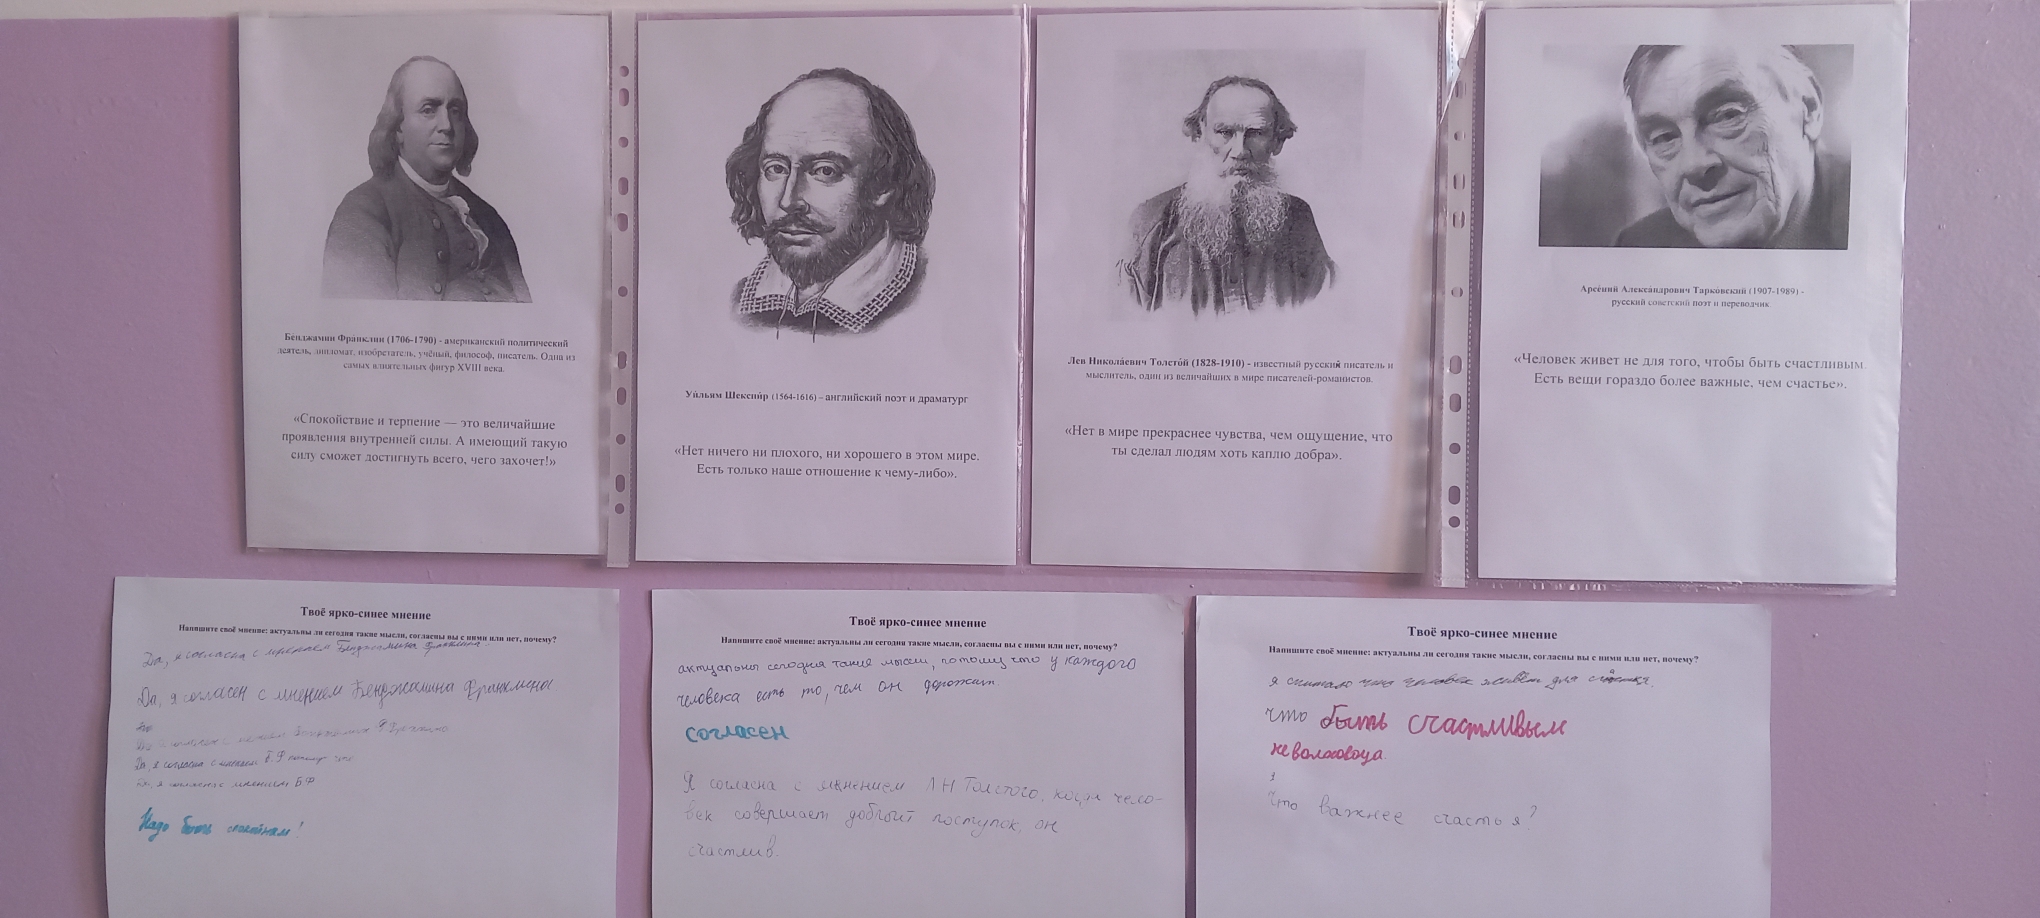 Бе́нджамин Фра́нклин (1706-1790) - американский политический
деятель, дипломат, изобретатель, учёный, философ, писатель. Одна из
самых влиятельных фигур XVIII века.
«Спокойствие и терпение — это величайшие
проявления внутренней силы. А имеющий такую
силу сможет достигнуть всего, чего захочет!»
Уи́льям Шекспи́р (1564-1616) – английский поэт и драматург
«Нет ничего ни плохого, ни хорошего в этом мире.
Есть только наше отношение к чему-либо».
Лев Никола́евич Толсто́й (1828-1910) - известный русский писатель и
мыслитель, один из величайших в мире писателей-романистов.
«Нет в мире прекраснее чувства, чем ощущение, что
ты сделал людям хоть каплю добра».
Арсе́ний Алекса́ндрович Тарко́вский (1907-1989) -
русский советский поэт и переводчик
«Человек живет не для того, чтобы быть счастливым.
Есть вещи гораздо более важные, чем счастье».
Твоё ярко-синее мнение
Напишите своё мнение: актуальны ли сегодня такие мысли, согласны вы с ними или нет, почему?
Да, я согласна с мнением Бенджамина Франклина.
Да, я согласен с мнением Бенджамина Франклина
Да, я согласна с мнением Б.Ф потому что
я с мнением Б.Ф
Надо быть
Твоё ярко-синее мнение
Напишите своё мнение: актуальны ли сегодня такие мысли, согласны вы с ними или нет, почему?
актуальны сегодня такие мысли, потому что у каждого
человека есть то, чем он дорожит
согласен
Я согласна с мнением Л Н Толстого, когда чело-
век совершает добрый поступок, он
счастлив.
Твоё ярко-синее мнение
Напишите своё мнение: актуальны ли сегодня такие мысли, согласны вы с ними или нет, почему?
я считаю что человек живёт для счастья.
что быть счастливым
Что важнее счастья?